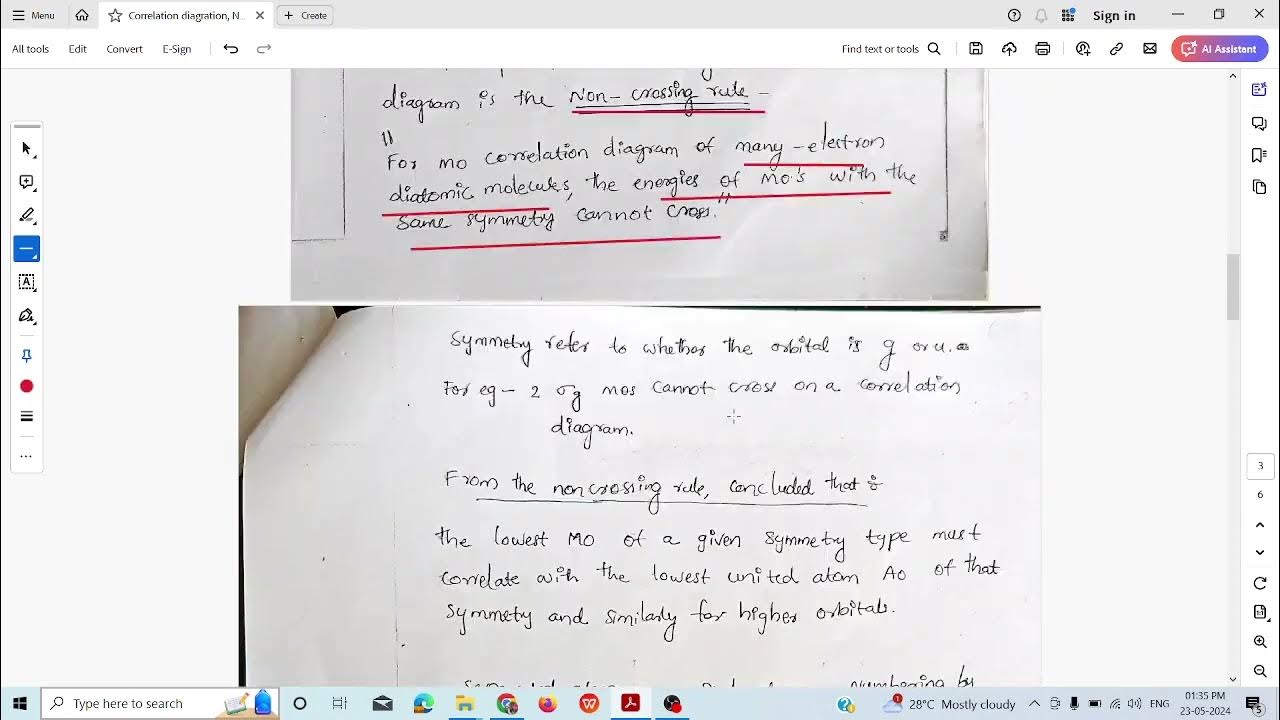 Menu
Correlation diagration, N...
Create
Sign in
All tools
Edit
Convert
E-Sign
Find text or tools
AI Assistant
diagram is the Non-crossing rule -
"
For mo correlation diagram of many-electron
diatomic molecules, the energies of MO's with the
same symmetry cannot cross."
Symmetry refer to whether the orbital is g or u.
For eg - 2 σg mos cannot cross on a correlation
diagram.
From the noncrossing rule, concluded that :
the lowest MO of a given symmetry type must
correlate with the lowest united atom AO of that
symmetry and similarly for higher orbitals.
3
6
Type here to search
28°C Mostly cloudy
ENG
01:35 PM
23-05-2024